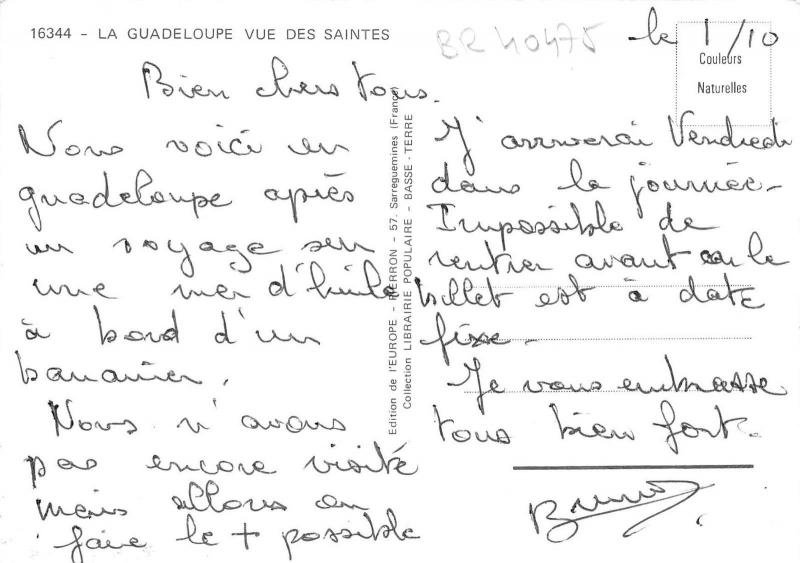 16344 - LA GUADELOUPE VUE DES SAINTES
BR 40475
le 1/10
Couleurs
Naturelles
Bien chers tous.
Nous voici en
guadeloupe après
un voyage sur
une mer d'huile
à bord d'un
bananier.
Nous n'avons
pas encore visité
mais allons en
faire le + possible
Edition de l'EUROPE - PIERRON - 57. Sarreguemines (France)
Collection LIBRAIRIE POPULAIRE - BASSE-TERRE
J'arriverai Vendredi
dans la journée-
Impossible de
rentrer avant car le
billet est à date
fixe-
Je vous embrasse
tous bien fort.
Bruno